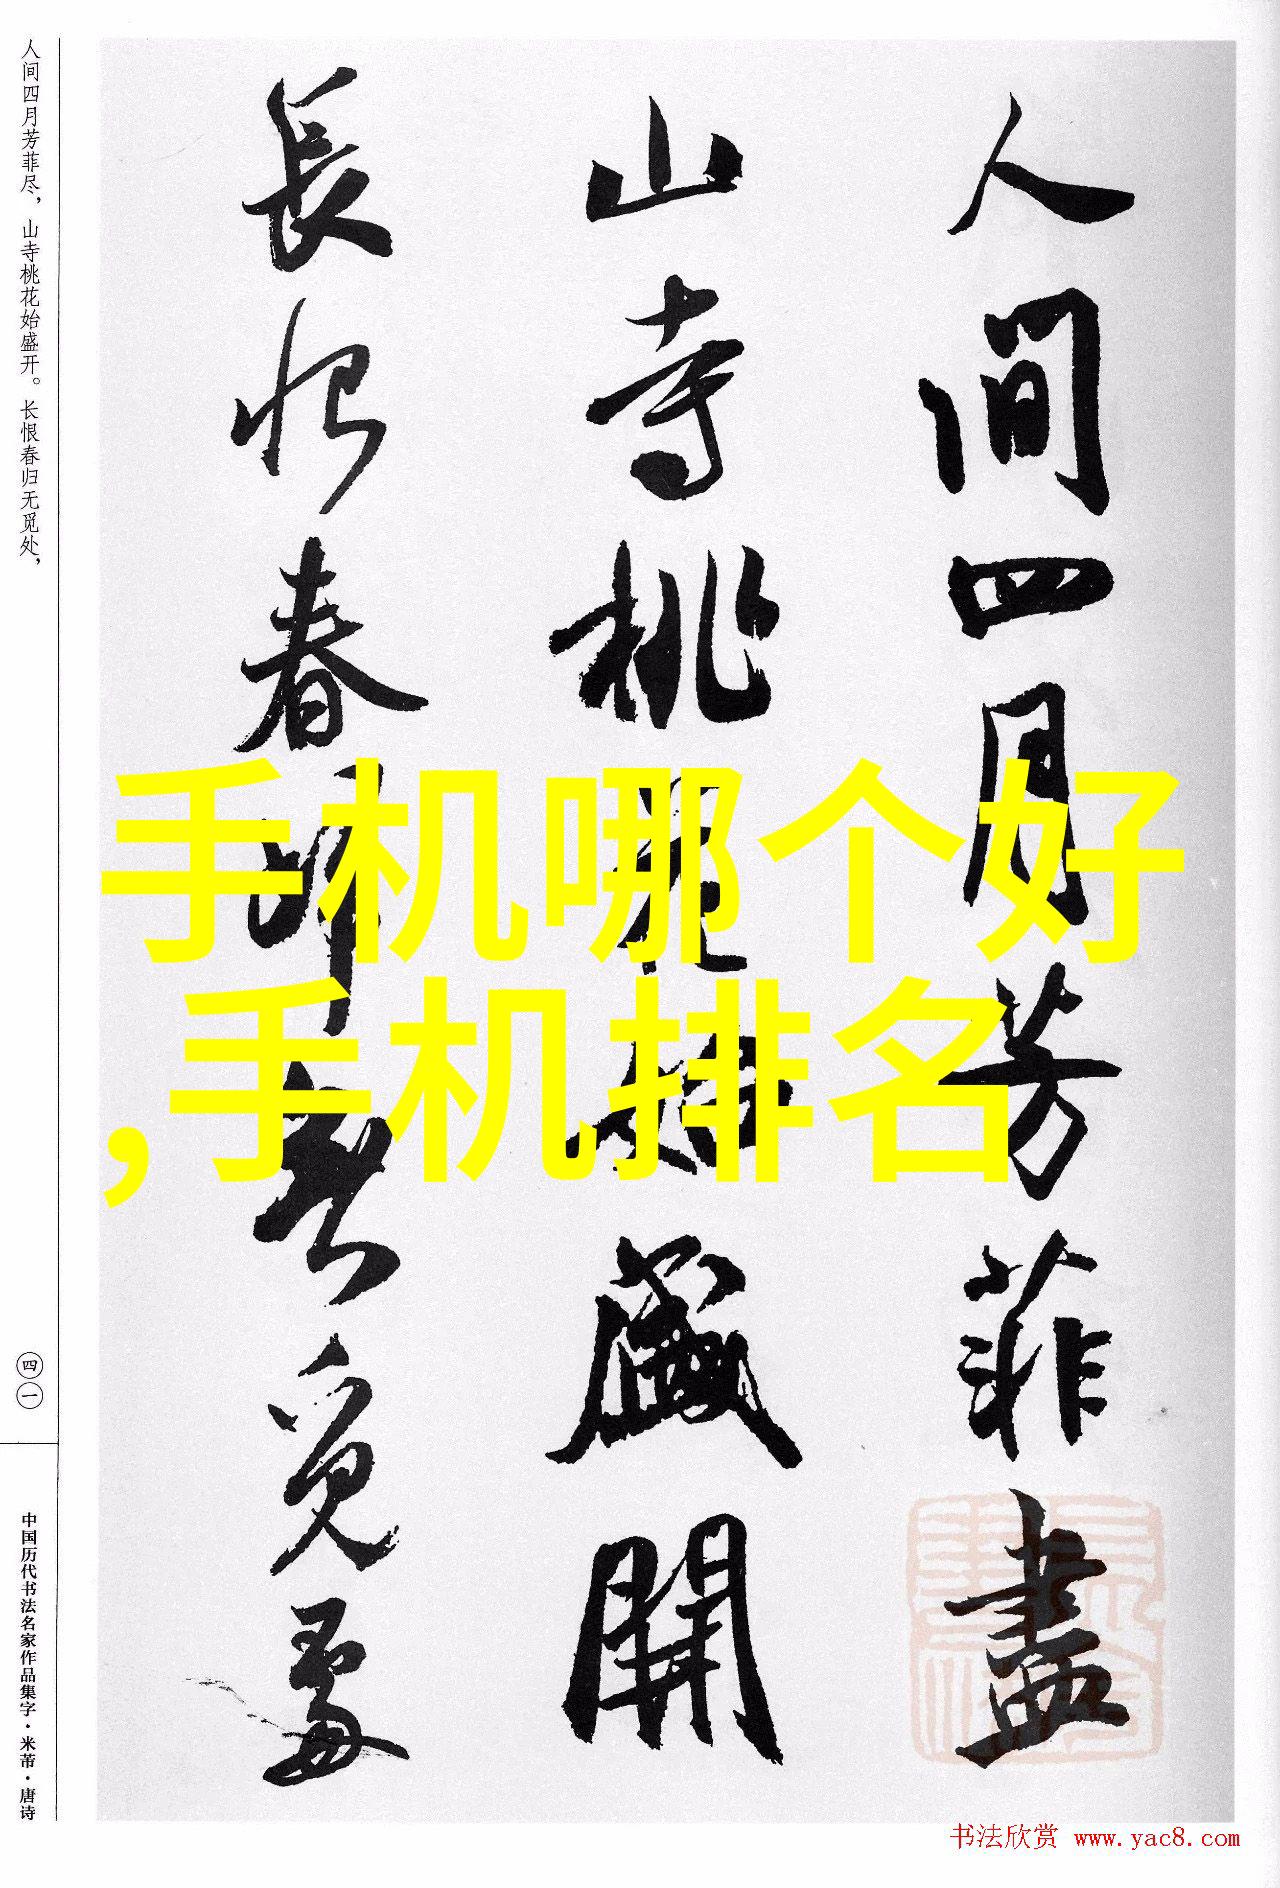 人間四月芳菲盡
山寺桃花始盛開
長恨春歸無覓處
手机哪个好
,手机排名
人间四月芳菲尽，山寺桃花始盛开。长恨春归无觅处，
四一
中国历代书法名家作品集字·米芾·唐诗
书法欣赏 www.yac8.com